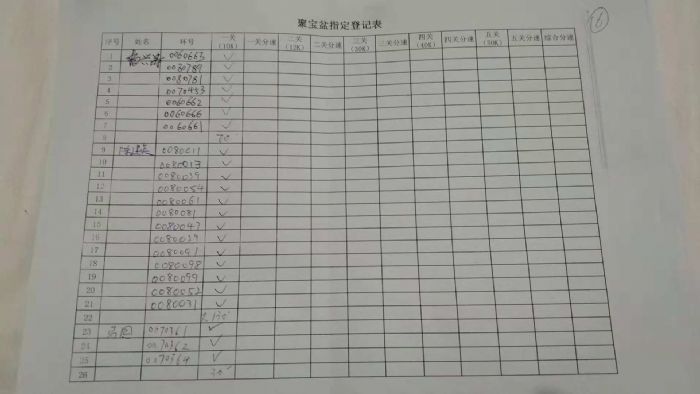 聚宝盆指定登记表
6
序号 姓名 环号 一关(10K) 一关分速 二关(12K) 二关分速 三关(30K) 三关分速 四关(40K) 四关分速 五关(50K) 五关分速 综合分速
1 0060663 ✓
2 0080789 ✓
3 0080781 ✓
4 0070453 ✓
5 0060662 ✓
6 0060666 ✓
7 0060661 ✓
8 70
9 0080011 ✓
10 0080013 ✓
11 0080039 ✓
12 0080054 ✓
13 0080061 ✓
14 0080081 ✓
15 0080047 ✓
16 0080029 ✓
17 0080091 ✓
18 0080098 ✓
19 0080099 ✓
20 0080052 ✓
21 0080031 ✓
22 130
23 0070361 ✓
24 0070362 ✓
25 0070364 ✓
26 30